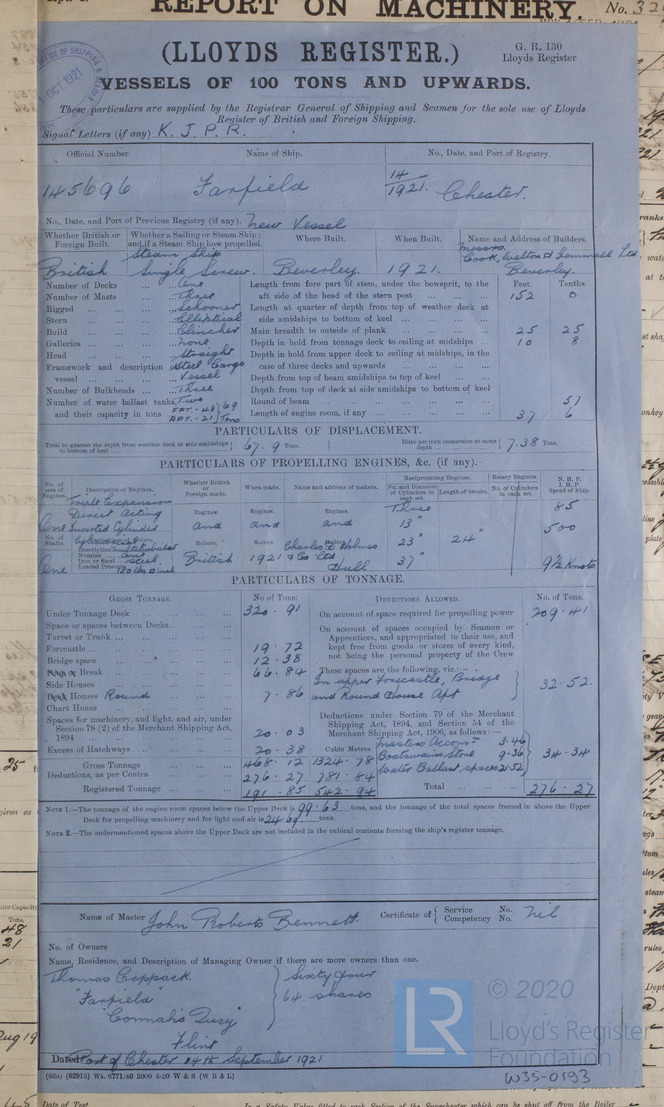 REPORT ON MACHINERY.
No. 32
OFFICE OF SHIPPING
OCT 1921
(LLOYDS REGISTER.)
G. R. 130
Lloyds Register
VESSELS OF 100 TONS AND UPWARDS.
These particulars are supplied by the Registrar General of Shipping and Seamen for the sole use of Lloyds
Register of British and Foreign Shipping.
Signal Letters (if any) K. J. P. R.
Official Number. Name of Ship. No., Date, and Port of Registry.
145696 Farfield 14/1921. Chester.
No., Date, and Port of Previous Registry (if any). New Vessel
Whether British or Foreign Built. Whether a Sailing or Steam Ship; and if a Steam Ship how propelled. Where Built. When Built. Name and Address of Builders.
British Steam Ship Single Screw. Beverley. 1921. Messrs. Cook, Welton & Gemmell Ltd Beverley.
Number of Decks ... One
Number of Masts ... Three
Rigged ... Schooner
Stern ... Elliptical
Build ... Clincher
Galleries ... None
Head ... Straight
Framework and description of vessel ... Steel Cargo Vessel
Number of Bulkheads ... Three
Number of water ballast tanks, Two
and their capacity in tons FPT. 48 APT. 21 } 69 Tons
Feet. Tenths
Length from fore part of stem, under the bowsprit, to the
aft side of the head of the stern post ... 152 0
Length at quarter of depth from top of weather deck at
side amidships to bottom of keel ...
Main breadth to outside of plank ... 25 25
Depth in hold from tonnage deck to ceiling at midships ... 10 8
Depth in hold from upper deck to ceiling at midships, in the
case of three decks and upwards ...
Depth from top of beam amidships to top of keel ...
Depth from top of deck at side amidships to bottom of keel
Round of beam ... 57
Length of engine room, if any ... 37 6
PARTICULARS OF DISPLACEMENT.
Total to quarter the depth from weather deck at side amidships to bottom of keel } 67. 9 Tons. Ditto per inch immersion at same depth } 7.38 Tons.
PARTICULARS OF PROPELLING ENGINES, &c. (if any).
No. of sets of Engines. Description of Engines. Whether British or Foreign made. When made. Name and address of makers. Reciprocating Engines. Rotary Engines. N.H.P. I.H.P. Speed of Ship.
No. and Diameter of Cylinders in each set. Length of Stroke. No. of Cylinders in each set.
One Triple Expansion Direct Acting Inverted Cylinder
Engines. Engines. Engines. Three 85
and and and 13" 500
No. of Shafts. Boilers. Boilers. Boilers. 23" 24"
Description
Number One
Iron or Steel Steel.
One Loaded Pressure 180 lbs □ inch British 1921 Charles D. Holmes & Co Ltd Hull 37" 9½ Knots
PARTICULARS OF TONNAGE.
GROSS TONNAGE. No of Tons. DEDUCTIONS ALLOWED. No. of Tons.
Under Tonnage Deck ... 320. 91
Space or spaces between Decks ...
Turret or Trunk ...
Forecastle ... 19. 72
Bridge space ... 12. 38
Break ... 66. 84
Side Houses ...
Houses Round ... 7. 86
Chart House ...
Spaces for machinery, and light, and air, under
Section 78 (2) of the Merchant Shipping Act,
1894 ... 20. 03
Excess of Hatchways ... 20. 38
Cubic Metres
Gross Tonnage 468. 12 1324. 78
Deductions, as per Contra ... 276. 27 781. 84
Registered Tonnage ... 191. 85 542. 94
On account of space required for propelling power 209. 41
On account of spaces occupied by Seamen or
Apprentices, and appropriated to their use, and
kept free from goods or stores of every kind,
not being the personal property of the Crew
These spaces are the following, viz:—
In upper Forecastle, Bridge
and Round House Aft } 32. 52.
Deductions under Section 79 of the Merchant
Shipping Act, 1894, and Section 54 of the
Merchant Shipping Act, 1906, as follows:—
Masters Accomn 3.46
Boatswains Store 9.36
Water Ballast spaces 21.52 } 34. 34
Total ... 276. 27
NOTE 1.—The tonnage of the engine room spaces below the Upper Deck is 99.63 tons, and the tonnage of the total spaces framed in above the Upper
Deck for propelling machinery and for light and air is 24.69 tons.
NOTE 2.—The undermentioned spaces above the Upper Deck are not included in the cubical contents forming the ship's register tonnage.
Name of Master John Roberts Bennett. Certificate of { Service No. Competency No. Nil
No. of Owners
Name, Residence, and Description of Managing Owner if there are more owners than one.
Thomas Coppack. Sixty four
"Farfield" 64. shares
Connah's Quay"
Flint
Dated Port of Chester 14th September 1921
(83o) (02915) Wt. 6771/40 2000 5-20 W & S (W B & L)
LR
© 2020
Lloyd's Register
Foundation
W35-0193
Date of Test